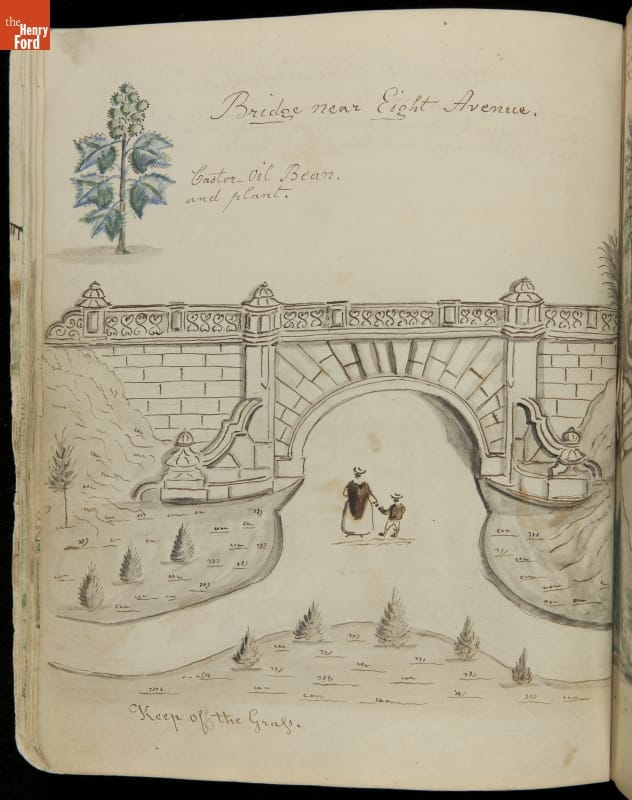 the
Henry
Ford
Bridge near Eight Avenue.
Castor-Oil Bean.
and plant.
Keep of the Grass.